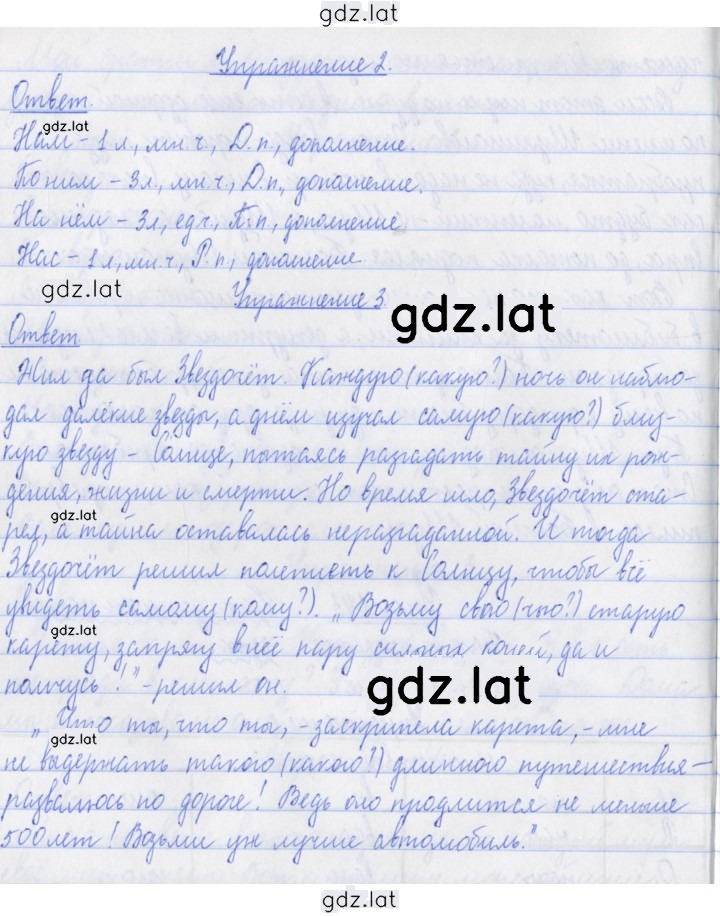 gdz.lat
Упражнение 2.
Ответ.
gdz.lat
Нам – 1 л, мн. ч., Д. п., дополнение.
По ним – 3 л, мн. ч., Д. п., дополнение.
На нём – 3 л, ед. ч., П. п., дополнение.
Нас – 1 л, мн. ч., Р. п., дополнение.
gdz.lat
Упражнение 3.
gdz.lat
Ответ
Жил да был Звездочёт. Каждую (какую?) ночь он наблю-
дал далёкие звезды, а днём изучал самую (какую?) близ-
кую звезду – Солнце, пытаясь разгадать тайну их рож-
дения, жизни и смерти. Но время шло, Звездочёт ста-
gdz.lat
рел, а тайна оставалась неразгаданной. И тогда
Звездочёт решил полететь к Солнцу, чтобы всё
увидеть самому (кому?). „Возьму свою (чью?) старую
gdz.lat
карету, запрягу в неё пару сильных коней, да и
помчусь!" – решил он.
gdz.lat
„Что ты, что ты, – заскрипела карета, – мне
gdz.lat
не выдержать такого (какого?) длинного путешествия –
развалюсь по дороге! Ведь оно продлится не меньше
500 лет! Возьми уж лучше автомобиль."
gdz.lat